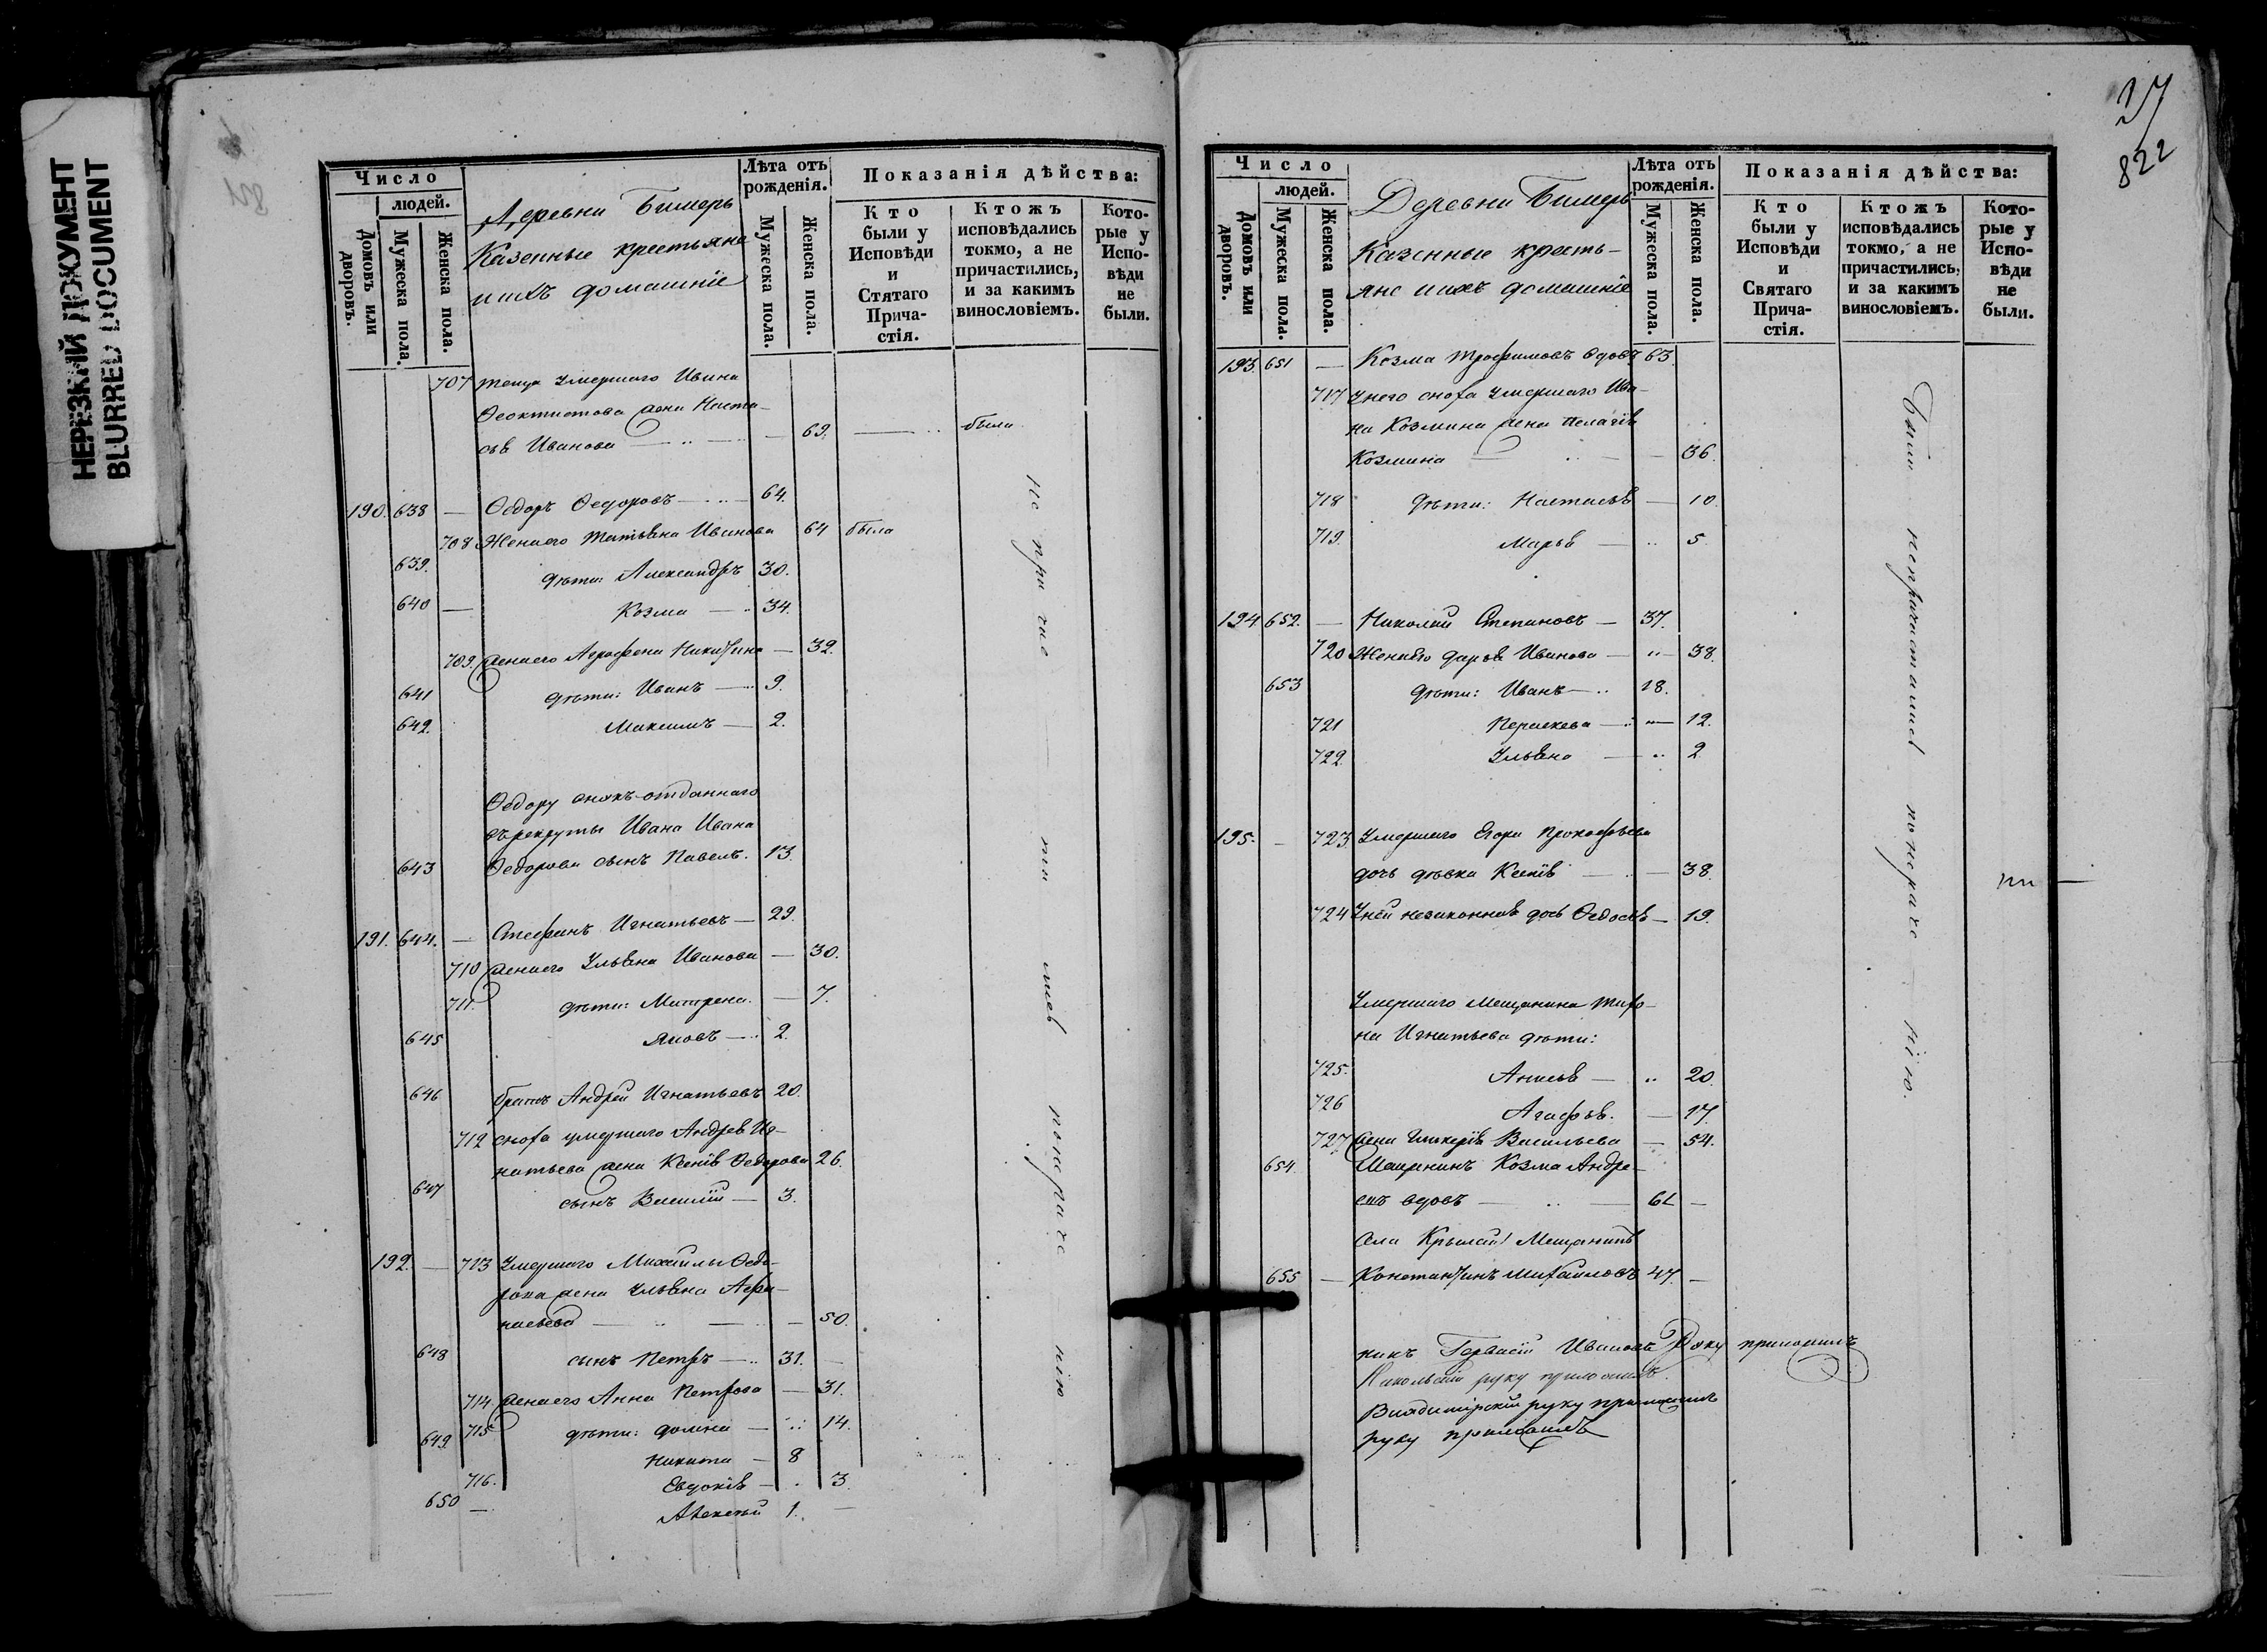 НЕРЕЗКИЙ ДОКУМЕНТ
BLURRED DOCUMENT
821
Число
людей.
Домовъ или дворовъ.
Мужеска пола.
Женска пола.
Деревни Бимерь
Казенные крестьяне
и ихъ домашніе
Лѣта отъ рожденія.
Мужеска пола.
Женска пола.
Показанія дѣйства:
Кто были у Исповѣди и Стятаго Причастія.
Ктожъ исповѣдались токмо, а не причастились, и за какимъ винословіемъ.
Которые у Исповѣди не были.
707 умершаго Ивана
Ѳеоктистова жена Наста-
сья Иванова 69. была
190. 638 — Ѳедоръ Ѳедоровъ — 64.
708 Жена его Татьяна Иванова 64 была
639. дѣти: Александръ 30.
640 — Козма — 34.
709. жена его Аграфена Никитина — 32.
641 дѣти: Иванъ — 9.
642. Максимъ — 2.
Ѳедору внукъ отданнаго
въ рекруты Ивана Ивана
643 Ѳедорова сынъ Павелъ. 13.
191. 644. — Стефанъ Игнатьевъ — 29.
710 жена его Ульяна Иванова — 30.
711. дѣти: Матрена. — 7.
645 Яковъ — 2.
646 братъ Андрей Игнатьевъ 20.
712 сноха умершаго Андрея Иг-
натьева жена Ксенія Ѳедорова 26.
647 сынъ Василій — 3.
192. — 713 Умершаго Михайлы Ѳедо-
рова жена Ульяна Афа-
насьева — 50.
648 сынъ Петръ — 31. —
714. жена его Анна Петрова — 31.
715 дѣти: Домна — 14.
649. Никита — 8
716. Евдокія — 3.
650 — Алексѣй 1.
не при час — ти лися по нерачс — нію
27
822
Число
людей.
Домовъ или дворовъ.
Мужеска пола.
Женска пола.
Деревни Бимерь
Казенные кресть-
яне и ихъ домашніе
Лѣта отъ рожденія.
Мужеска пола.
Женска пола.
Показанія дѣйства:
Кто были у Исповѣди и Святаго Причастія.
Ктожъ исповѣдались токмо, а не причастились, и за какимъ винословіемъ.
Которые у Исповѣди не были.
193. 651 — Козма Трофимовъ вдовъ 63.
717 У него сноха умершаго Ива-
на Козмина жена Пелагія
Козмина — 36.
718 дѣти: Настасья — 10.
719. Марья — 5.
194. 652. — Николай Степановъ — 37.
720 Жена его Дарья Иванова — 38.
653 дѣти: Иванъ — 18.
721 Параскева — 12.
722. Ульяна — 2
195. — 723. Умершаго Егора Прокофьева
дочь дѣвка Ксенія — 38.
724 У ней незаконная дочь Ѳедосья — 19.
Умершаго Мещанина
на Игнатьева дѣти:
725. Анисья — 20.
726 Агафья. — 17.
727 жена Гликерія Васильева — 54.
654. Мещанинъ Козма Андре-
евъ вдовъ —
Села Крылай Мещанинъ
655 — Константинъ Михайловъ 47. —
Были непричастились по нерачс — нію.
никъ Гервасій Ивановъ Руку приложилъ
Никольскій руку приложилъ.
Владимірскій руку приложилъ
руку приложилъ